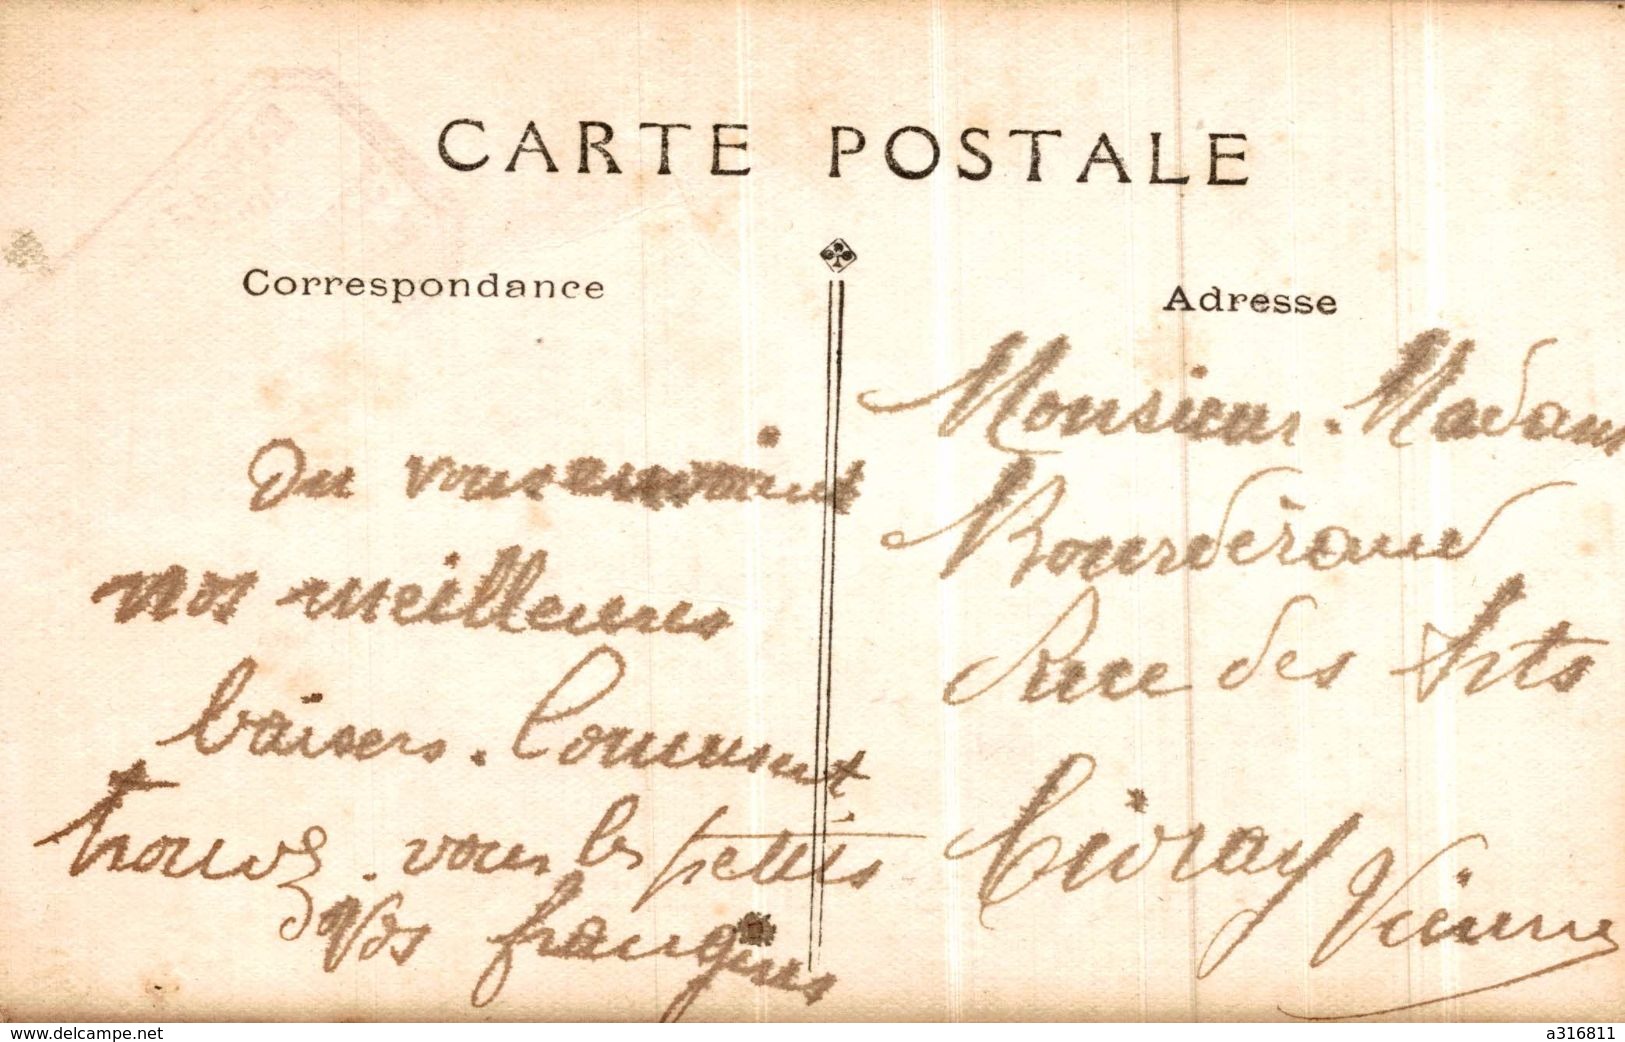 CARTE POSTALE
Correspondance
On vous envoient
nos meilleures
baisers. Comment
trouvez. vous les petits
Vos frangins
Adresse
Monsieur. Madame
Rue des Arts
Civray
Vienne
www.delcampe.net
a316811